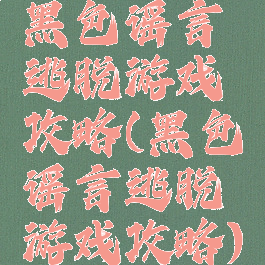 黑色谣言
逃脱游戏
攻略(黑色
谣言逃脱
游戏攻略)